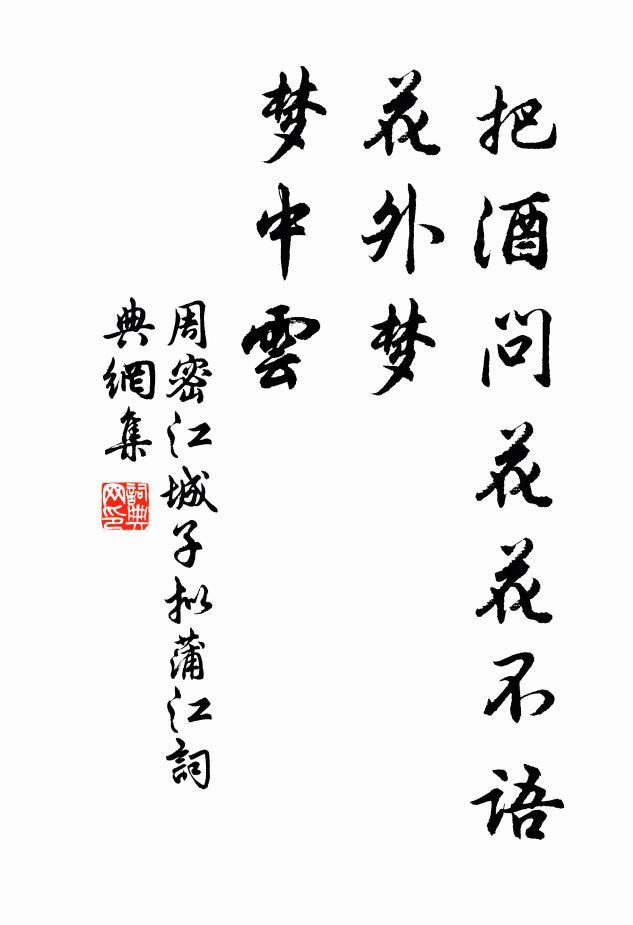 把酒问花花不语
花外梦
梦中雲
周密江城子拟蒲江詞
典網集
詞典网印